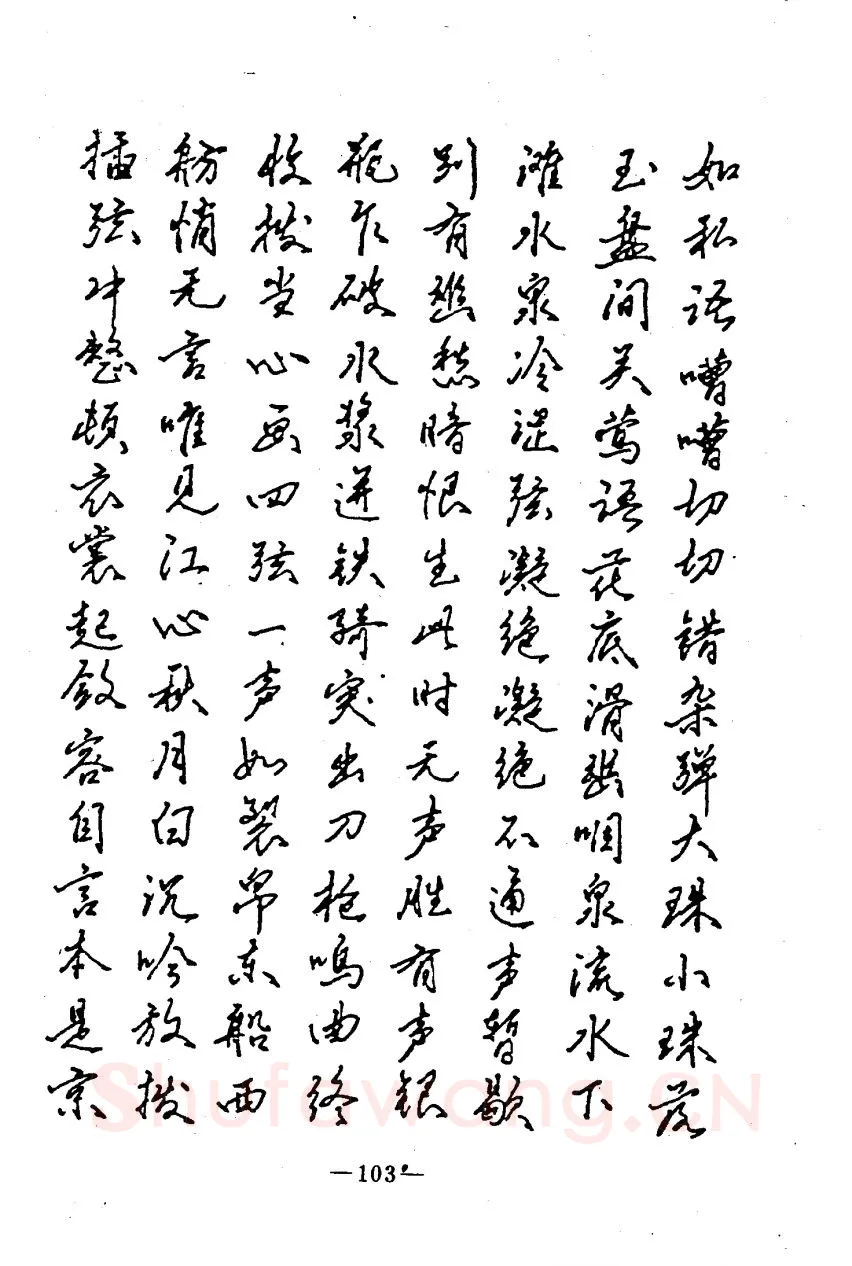 如私语嘈嘈切切错杂弹大珠小珠落
玉盘间关莺语花底滑幽咽泉流水下
滩水泉冷涩弦凝绝凝绝不通声暂歇
别有幽愁暗恨生此时无声胜有声银
瓶乍破水浆迸铁骑突出刀枪鸣曲终
收拨当心画四弦一声如裂帛东船西
舫悄无言唯见江心秋月白沉吟放拨
插弦中整顿衣裳起敛容自言本是京
—103—
Shufawang.CN